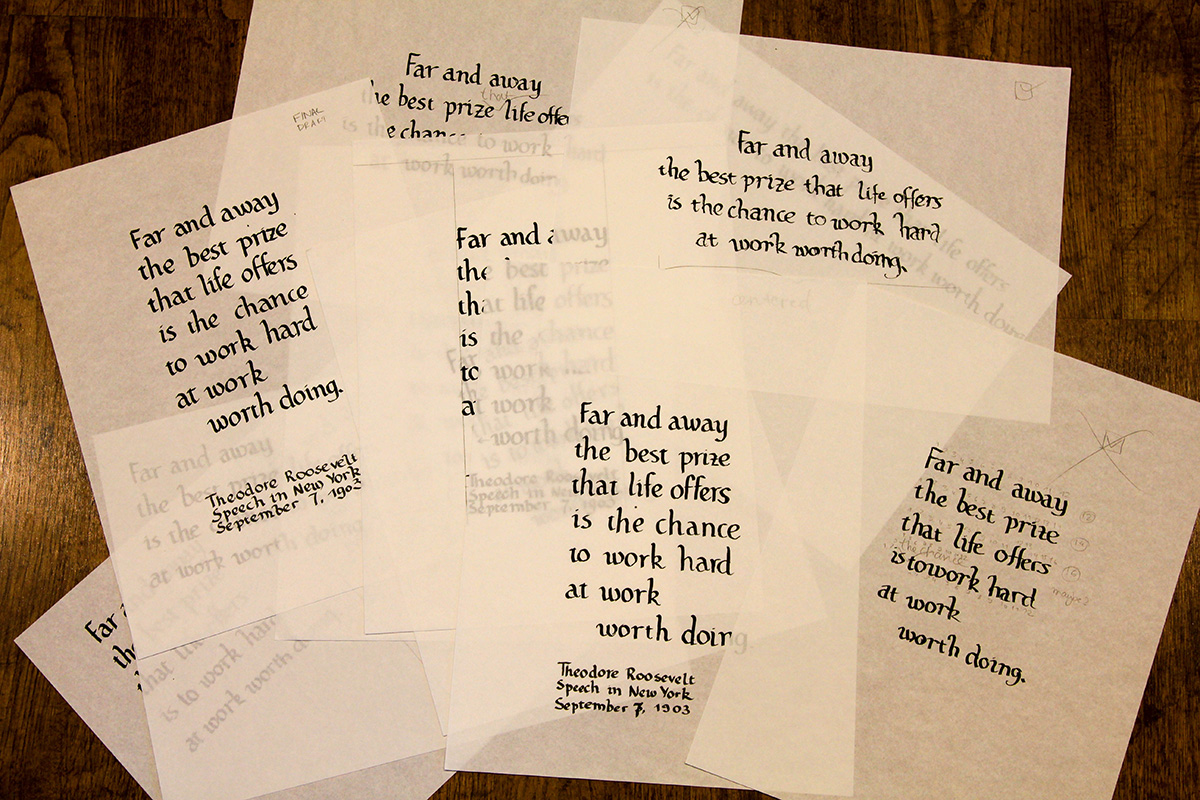 Far and away
that
the best prize life offe
e chance
is the chance to work hard
at work worth doing
FINAL
DRAFT
Far and away
the best prize
that life offers
is the chance
to work hard
at work
worth doing.
Theodore Roosevelt
Speech in New York
September 7, 1903
Far and away
the best prize that life offers
is the chance to work hard
at work worth doing.
centered
life offers
work worth doing
Far and away
the best prize
that life offers
is the chance
to work hard
at work
worth doing
Theodore Roosevelt
Speech in New York
September 7, 1903
Far and away
the best prize
that life offers
is the chance
to work hard
at work
worth doing
Theodore Roosevelt
Speech in New York
September 7, 1903
Far and away
the best prize
that life offers
the chance
is to work hard
maybe?
at work
worth doing.
Far and away
the best
is the
at work worth doing
Far
th
that
is to work har
at work worth